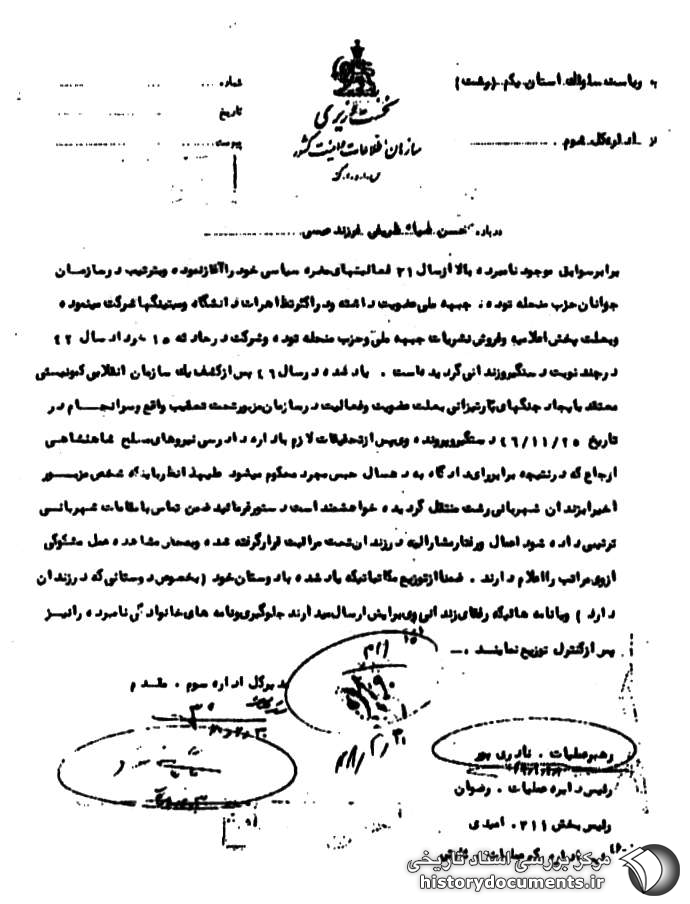 به ریاست ساواک استان یکم (رشت)
از اداره کل سوم
نخست وزیری
سازمان اطلاعات و امنیت کشور
س.ا.و.ا.ک
شماره
تاریخ
پیوست
درباره حسن ضیاء ظریفی فرزند عیسی
برابر سوابق موجود نامبرده بالا از سال ۳۱ فعالیتهای مضره سیاسی خود را آغاز نموده و بترتیب در سازمان
جوانان حزب منحله توده، جبهه ملی عضویت داشته و در اکثر تظاهرات دانشگاه و میتینگها شرکت مینموده
و بعلت پخش اعلامیه و فروش نشریات جبهه ملی و حزب منحله توده و شرکت در حادثه ۱۵ خرداد سال ۴۲
در چند نوبت دستگیر و زندانی گردیده است. یاد شده در سال ۴۶ پس از کشف یک سازمان انقلابی کمونیستی
معتقد بایجاد جنگهای پارتیزانی بعلت عضویت و فعالیت در سازمان مزبور تحت تعقیب واقع و سرانجام در
تاریخ ۴۶/۱۱/۲۵ دستگیر و پرونده وی پس از تحقیقات لازم باداره دادرسی نیروهای مسلح شاهنشاهی
ارجاع که در نتیجه برابر رای دادگاه به ده سال حبس مجرد محکوم میشود علیهذا نظر باینکه شخص مزبور
اخیرا بزندان شهربانی رشت منتقل گردیده خواهشمند است دستور فرمائید ضمن تماس با مقامات شهربانی
ترتیبی داده شود اعمال و رفتار مشارالیه در زندان تحت مراقبت قرار گرفته شده و بمحض مشاهده عمل مشکوکی
از وی مراتب را اعلام دارند. ضمنا از توزیع مکاتباتیکه یاد شده با دوستان خود (بخصوص دوستانی که در زندان
دارد) و یا نامه هائیکه رفقای زندانی وی برایش ارسال میدارند جلوگیری و نامه های خانوادگی نامبرده را نیز
پس از کنترل توزیع نمایند.
مدیر کل اداره سوم. مقدم
رهبر عملیات. نادری پور
رئیس دایره عملیات. رضوان
رئیس بخش ۳۱۱. امیدی
مرکز بررسی اسناد تاریخی
historydocuments.ir